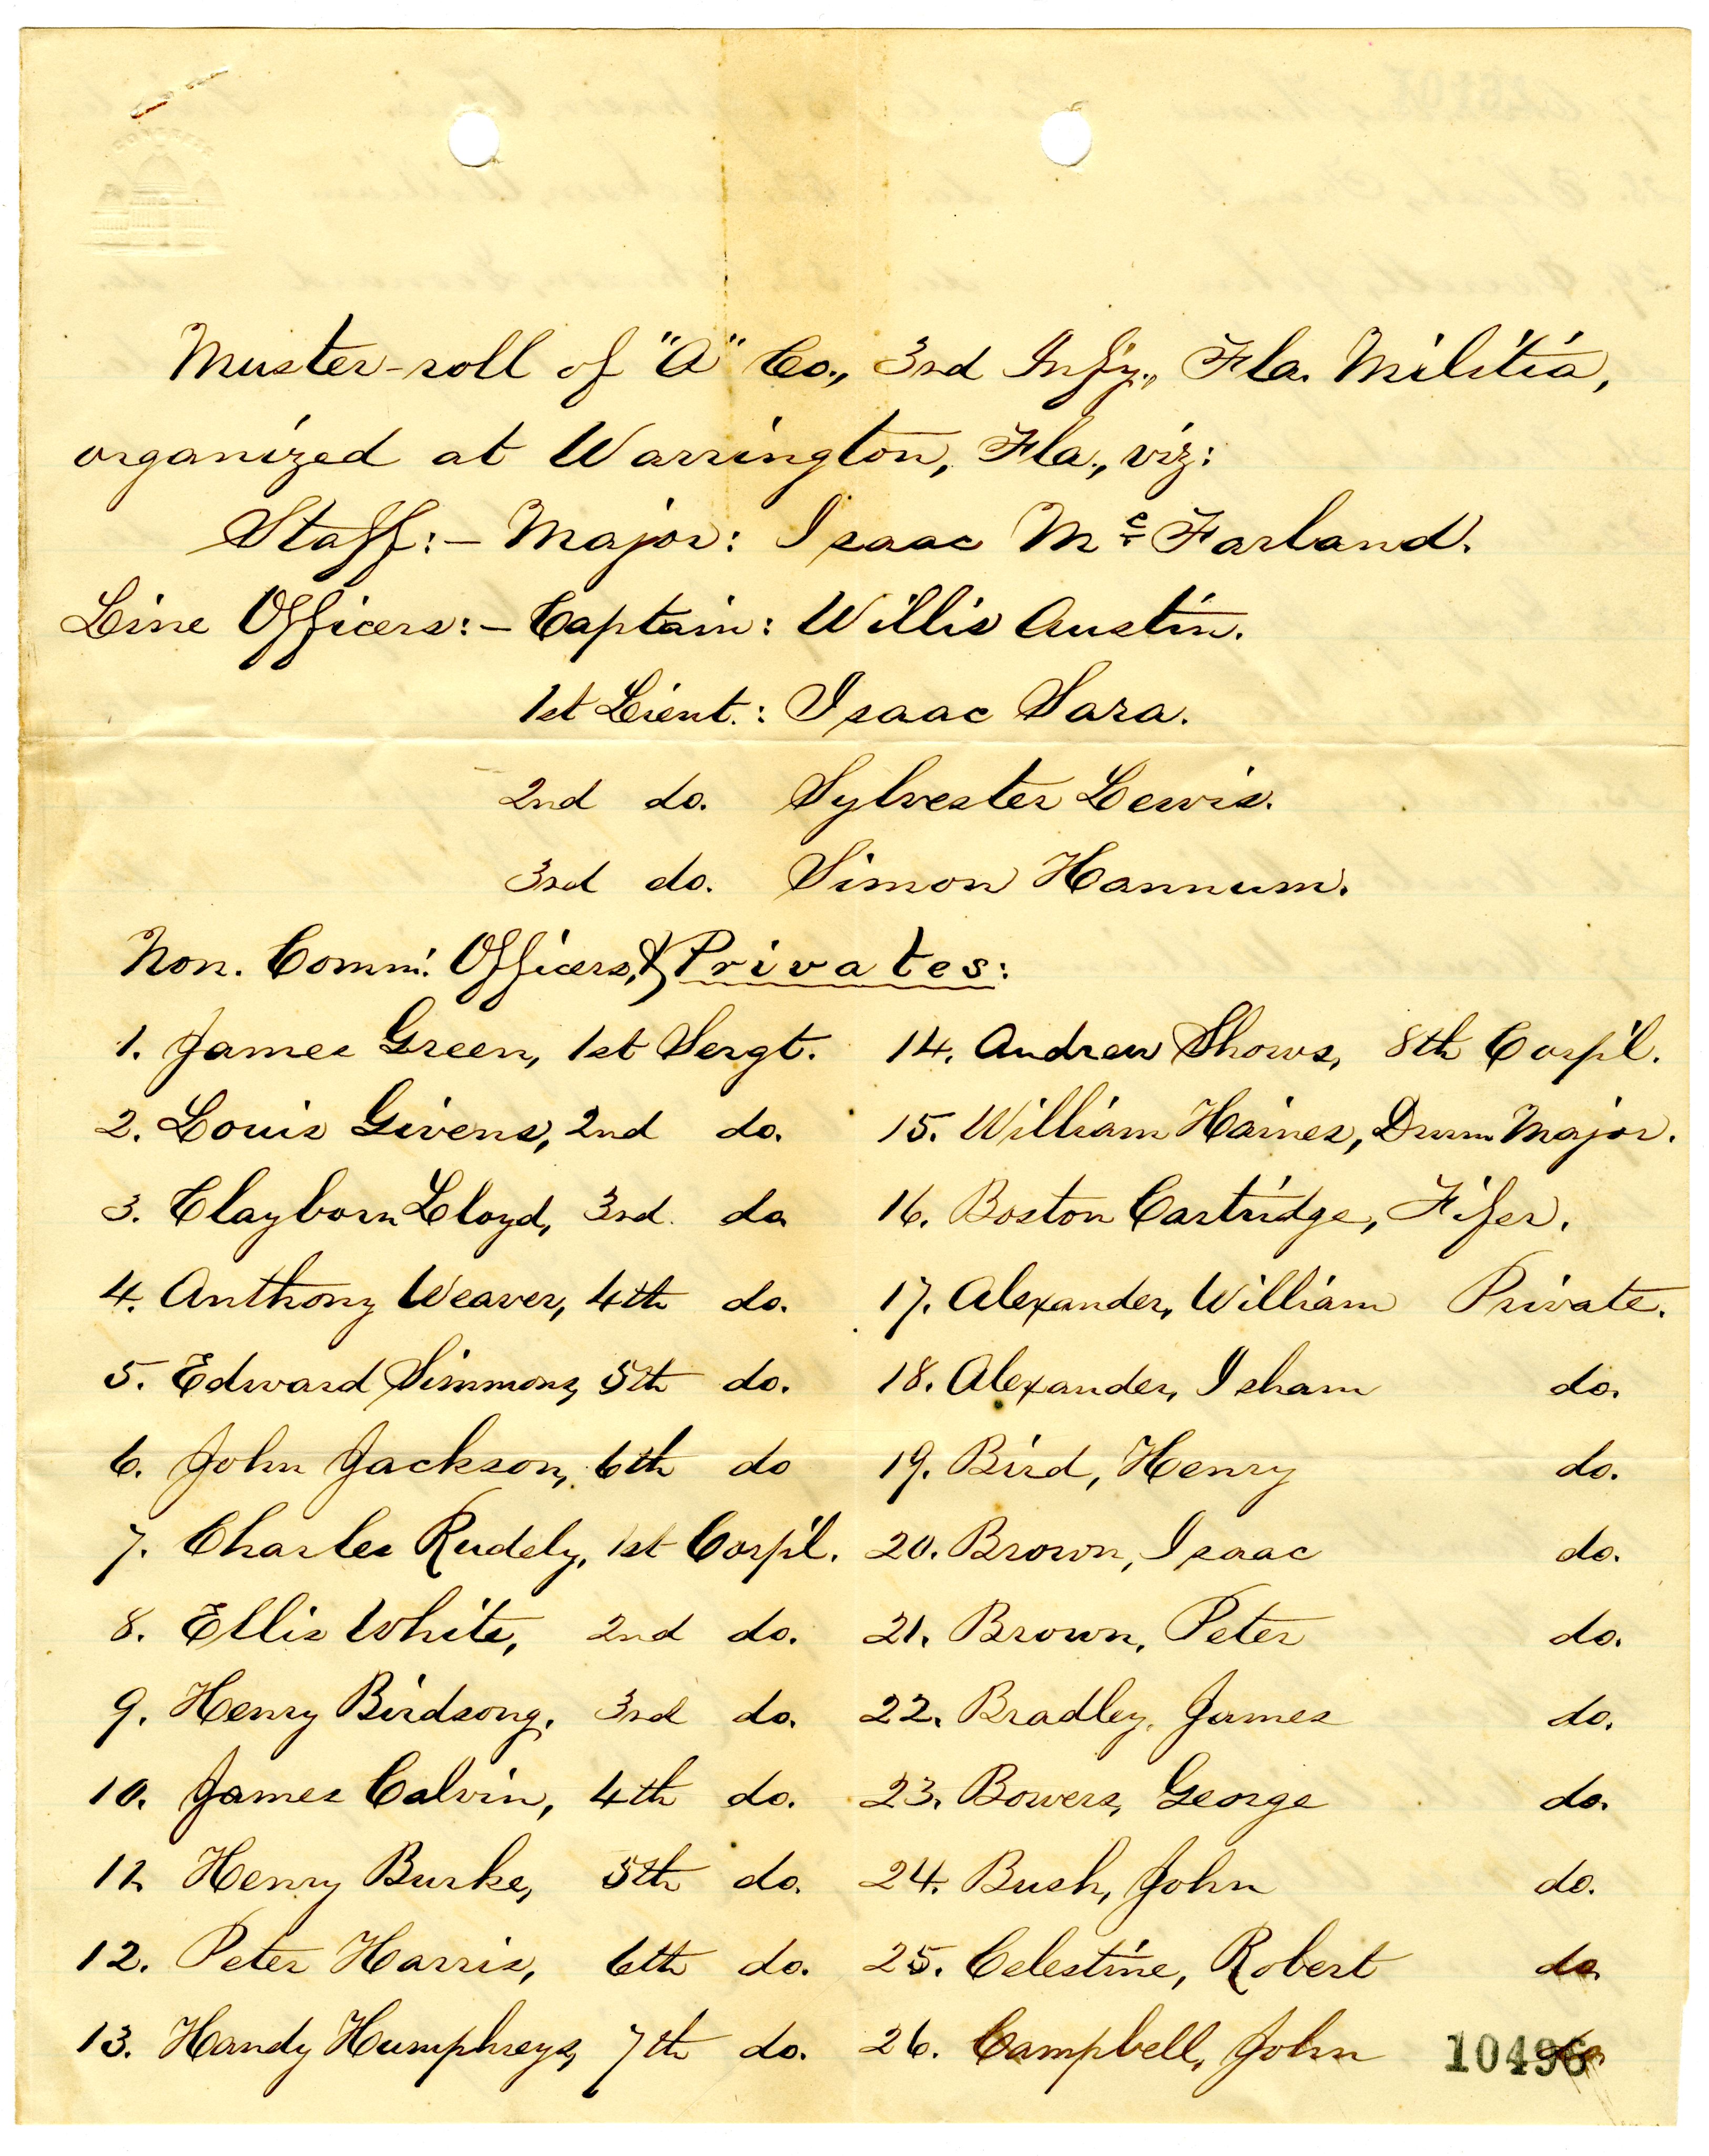 Muster-roll of "A" Co., 3rd Infy., Fla. Militia,
organized at Warrington, Fla., viz:
Staff:- Major: Isaac McFarland.
Line Officers:- Captain: Willis Austin.
1st Lieut.: Isaac Sara.
2nd do. Sylvester Lewis.
3rd do. Simon Hannum.
Non. Comm. Officers, & Privates:
1. James Green, 1st Sergt.
2. Louis Givens, 2nd do.
3. Clayborn Lloyd, 3rd. do
4. Anthony Weaver, 4th do.
5. Edward Simmons, 5th do.
6. John Jackson, 6th do
7. Charles Rudely, 1st Corp'l.
8. Ellis White, 2nd do.
9. Henry Birdsong, 3rd do.
10. James Calvin, 4th do.
11. Henry Burke, 5th do.
12. Peter Harris, 6th do.
13. Handy Humphreys, 7th do.
14. Andrew Shows, 8th Corp'l.
15. William Haines, Drum Major.
16. Boston Cartridge, Fifer.
17. Alexander, William Private.
18. Alexander, Isham do.
19. Bird, Henry do.
20. Brown, Isaac do.
21. Brown, Peter do.
22. Bradley, James do.
23. Bowers, George do.
24. Bush, John do.
25. Celestine, Robert do.
26. Campbell, John do.
10496